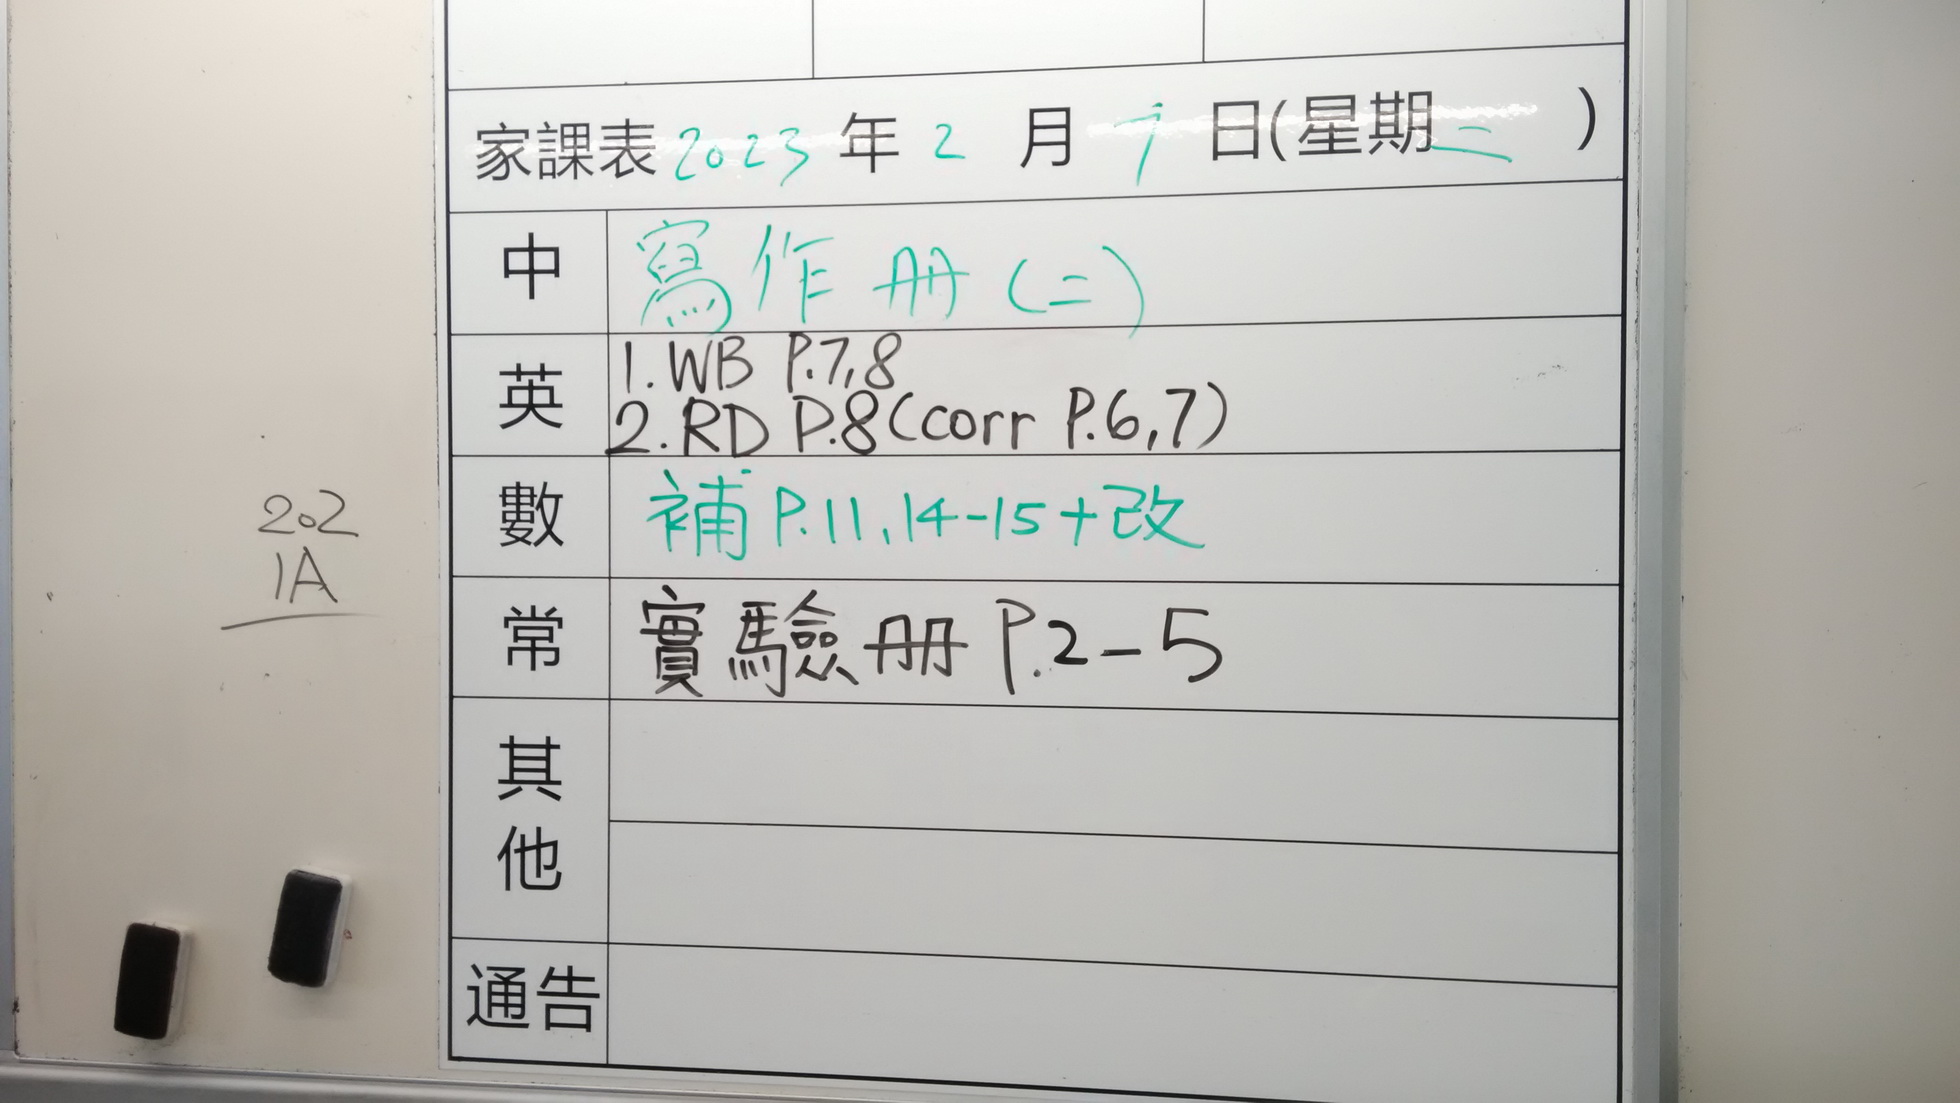 家課表 2023 年 2 月 7 日(星期二)
中 寫作册(二)
英 1. WB P.7,8
2. RD P.8(corr P.6,7)
數 補 P.11,14-15+改
常 實驗册 P.2-5
其他
通告
202
1A